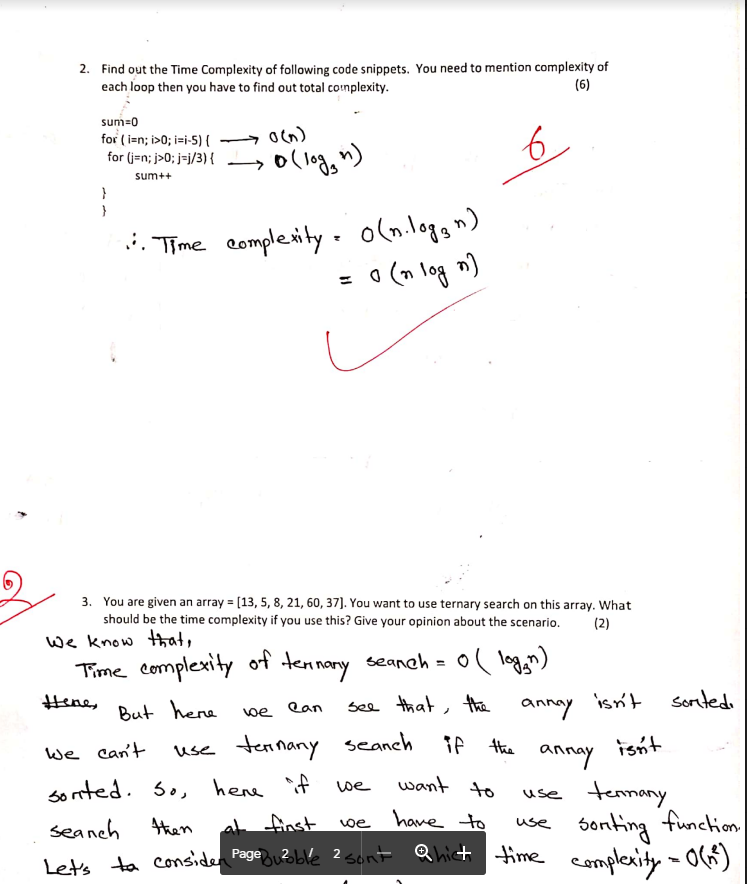 2. Find out the Time Complexity of following code snippets. You need to mention complexity of
each loop then you have to find out total complexity. (6)
sum=0
for ( i=n; i>0; i=i-5) { → O(n)
for (j=n; j>0; j=j/3) { → O(log₃n)
sum++
}
}
6
∴ Time complexity = O(n.log₃n)
= O(n log n)
3. You are given an array = [13, 5, 8, 21, 60, 37]. You want to use ternary search on this array. What
should be the time complexity if you use this? Give your opinion about the scenario. (2)
We know that,
Time complexity of ternary search = O( log₃n)
Here,
But here we can see that, the array isn't sorted.
We can't use ternary search if the array isn't
sorted. So, here if we want to use ternary
search then at first we have to use sorting function.
Let's to consider Bubble sort which time complexity = O(n²)
Page 2 / 2